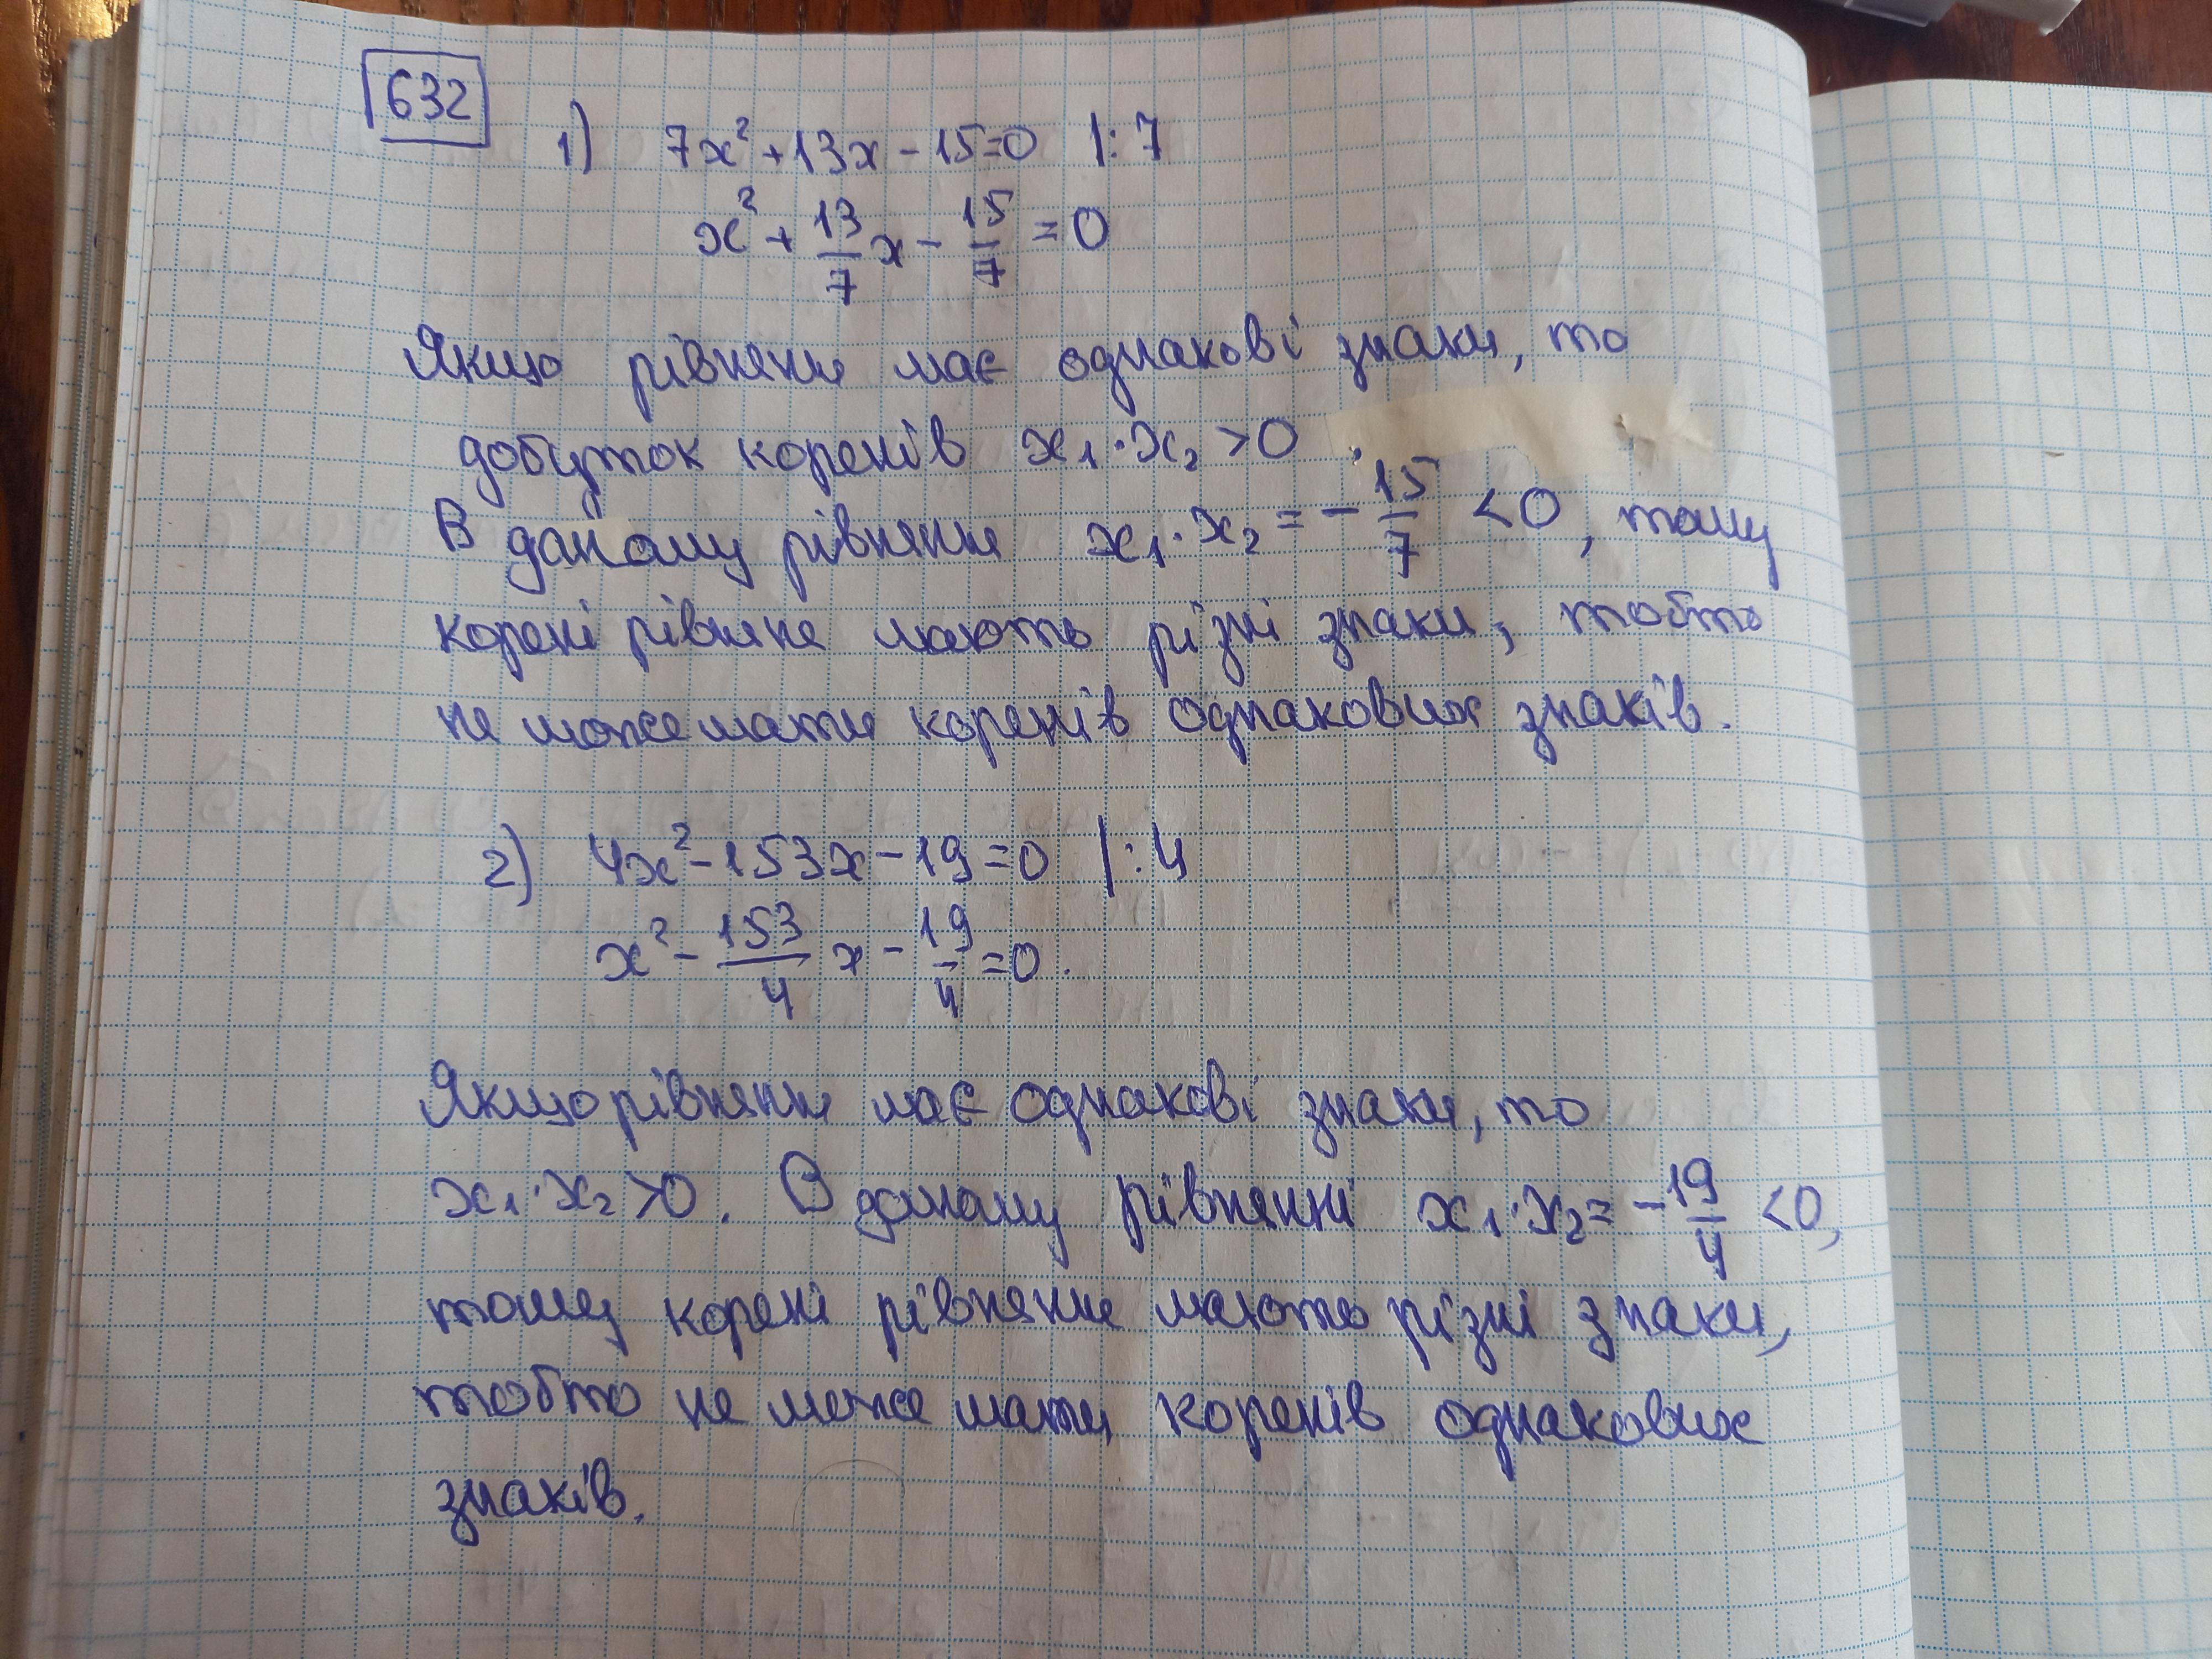 632
1) 7x² + 13x - 15 = 0 |: 7
x² + 13/7 x - 15/7 = 0
Якщо рівняння має однакові знаки, то
добуток коренів x₁ · x₂ > 0.
В даному рівнянні x₁ · x₂ = - 15/7 < 0, тому
корені рівняння мають різні знаки, тобто
не може мати коренів однакових знаків.
2) 4x² - 153x - 19 = 0 |: 4
x² - 153/4 x - 19/4 = 0.
Якщо рівняння має однакові знаки, то
x₁ · x₂ > 0. В даному рівнянні x₁ · x₂ = - 19/4 < 0,
тому корені рівняння мають різні знаки,
тобто не може мати коренів однакових
знаків.